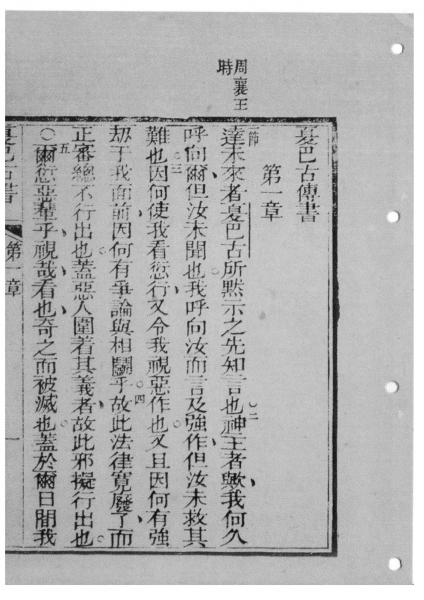 周襄王
時
夏巴古傳書
第一章
一節
達未來者夏巴古所默示之先知言也○二神主者歟我何久
呼向爾但汝未聞也我呼向汝而言及強作但汝未救其
難也○三因何使我看愆行又令我視惡作也又且因何有強
劫于我面前因何有爭論與相鬬乎○四故此法律寬廢了而
正審總不行出也蓋惡人圍着其義者故此邪擬行出也
○五爾愆惡輩乎視哉看也奇之而被滅也蓋於爾日間我
夏巴古書
第一章
一